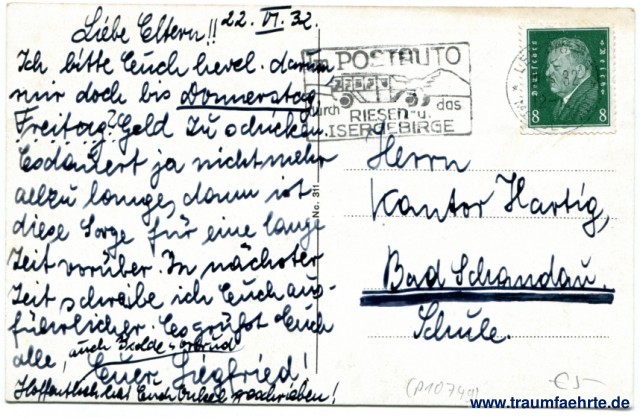 22. VI. 32.
Liebe Eltern!!
Ich bitte Euch herzl. darum
mir doch bis Donnerstag
Freitag? Geld zu schicken.
Es dauert ja nicht mehr
allzu lange, dann ist
diese Sorge für eine lange
Zeit vorüber. In nächster
Zeit schreibe ich Euch aus-
führlicher. Es grüßt Euch
alle, auch
Euer Siegfried!
Hoffentlich hat Euch Onkel geschrieben!
MIT POSTAUTO
durch das
RIESEN- u.
ISERGEBIRGE
Deutsches Reich
8 8
No. 311
Herrn
Kantor Hartig,
Bad Schandau.
Schule.
(A10744)
€5-
www.traumfaehrte.de